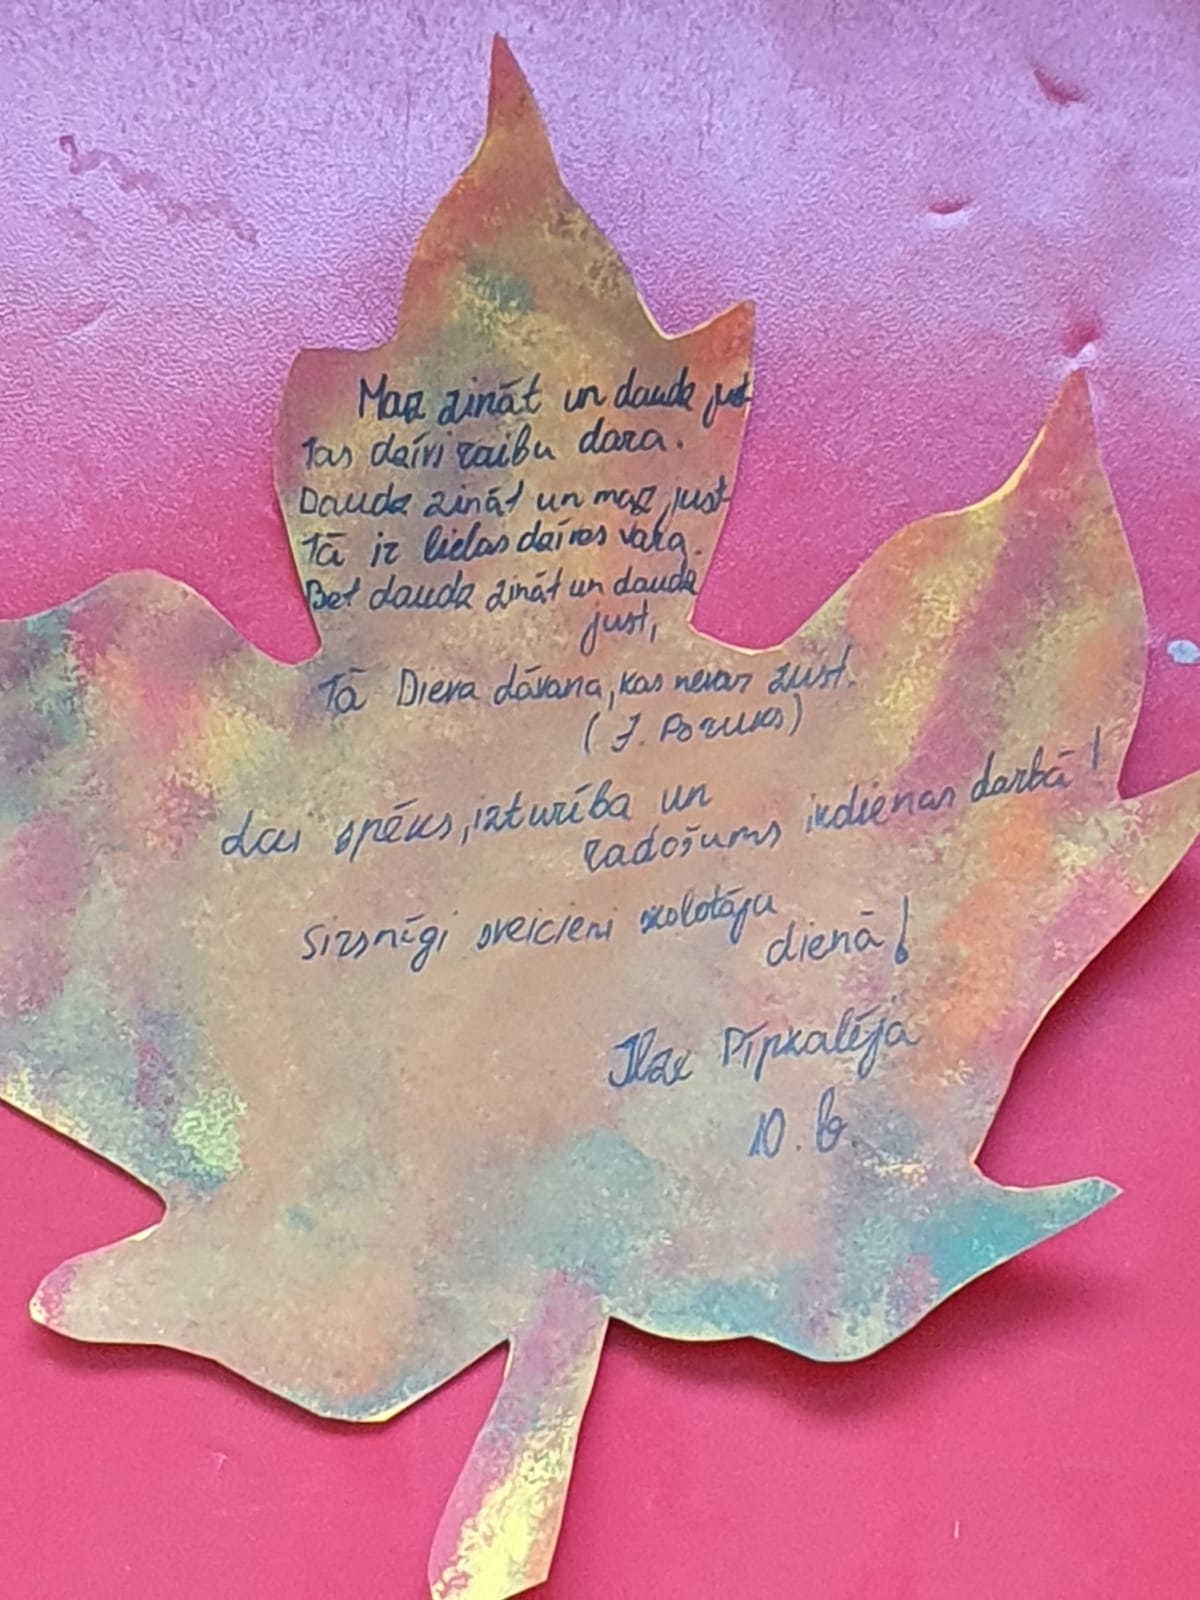 Maz zināt un daudz just
Tas dzīvi raibu dara.
Daudz zināt un maz just
Tā ir lielas dzīves vara.
Bet daudz zināt un daudz
just,
Tā Dieva dāvana, kas nevar zust.
(J. Poruks)
Lai spēks, izturība un
radošums ikdienas darbā!
Sirsnīgi sveicieni skolotāju
dienā!
Ilze Pīpkalēja
10. b